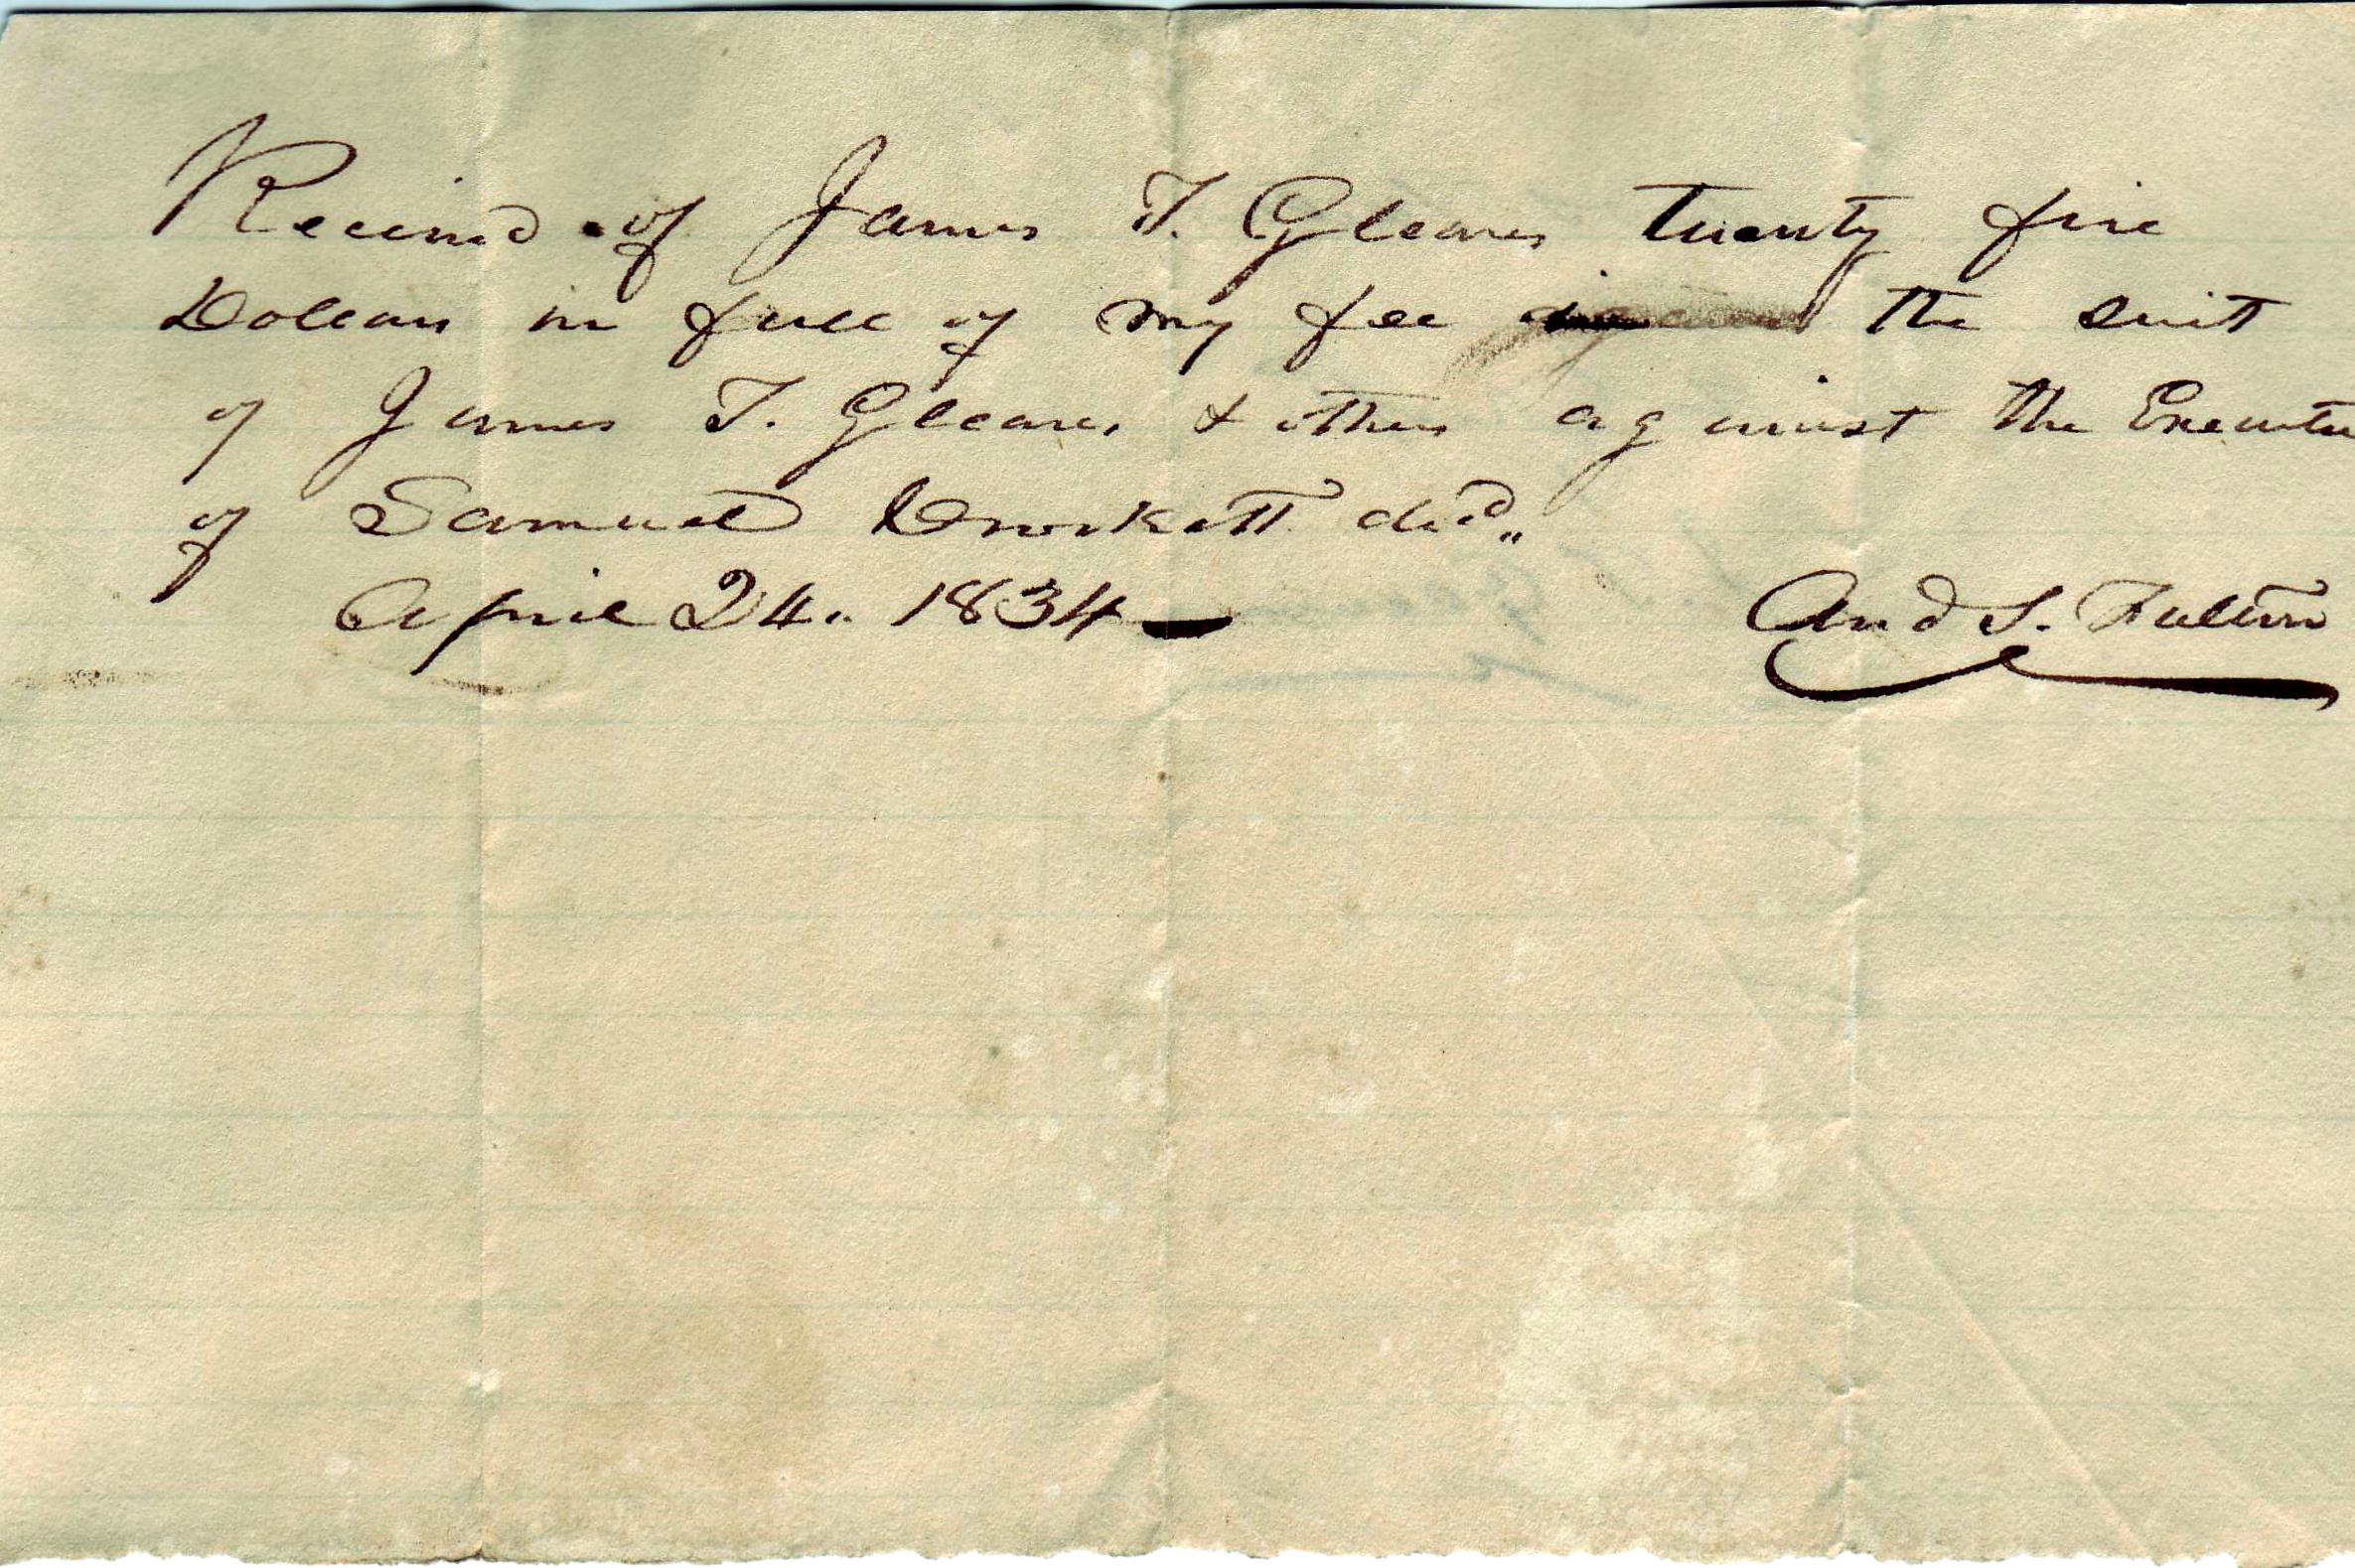 Received of James T. Gleaves twenty five
Dollars in full of my fee in the suit
of James T. Gleaves & others against the Executor
of Samuel Crockett dec'd
April 24. 1834
And S. Fulton